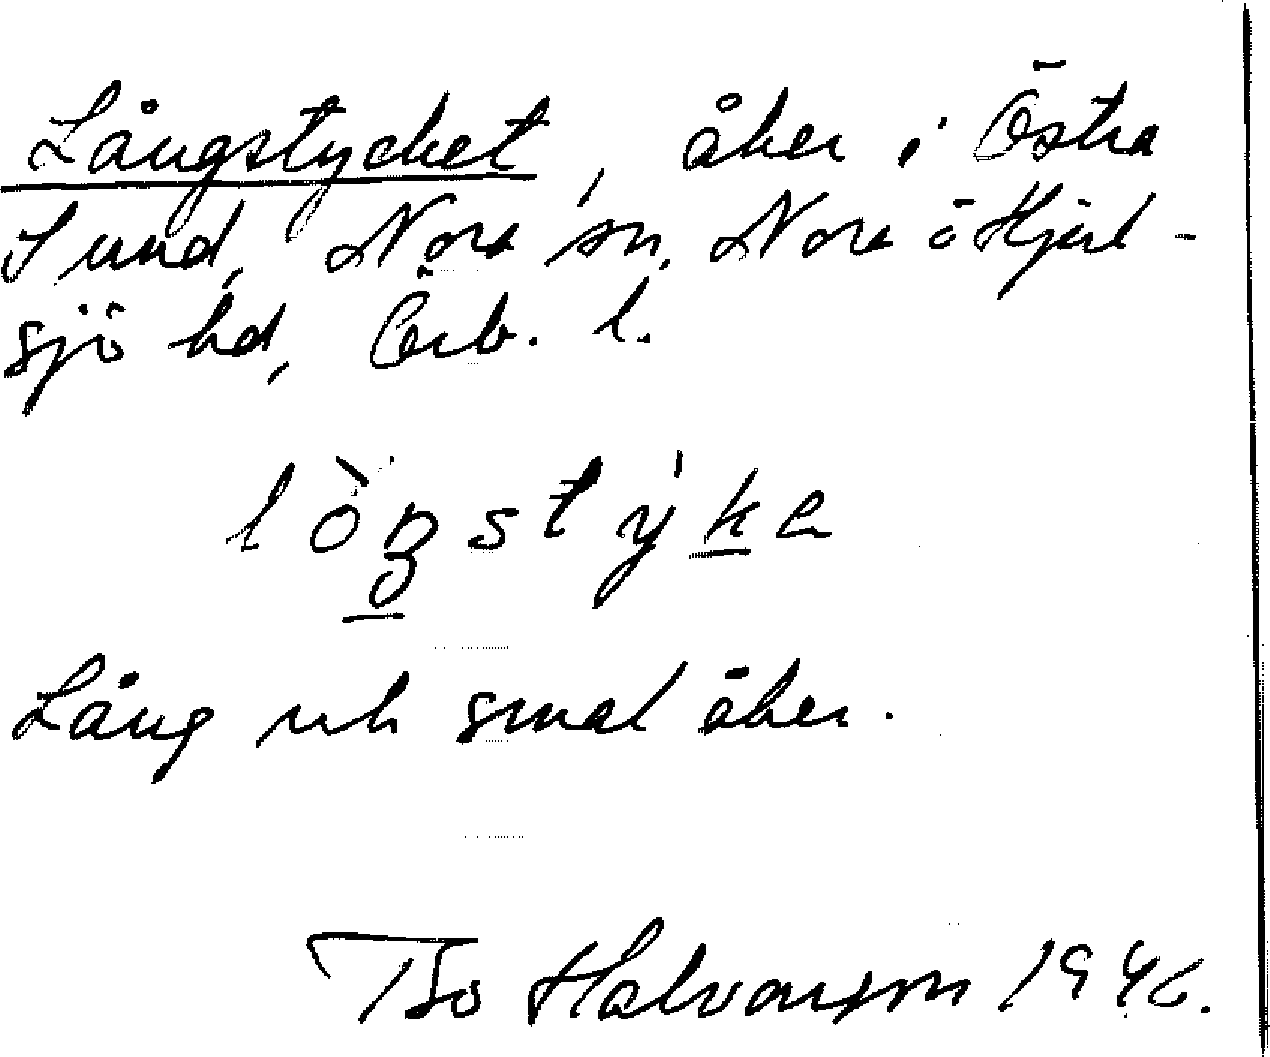 Långstycket, åker i Östra
Sund, Nora sn, Nora o Hjul-
sjö hd, Örb. l.
lò̀ŋstýke
Lång och smal åker.
Bo Halvarson 1946.